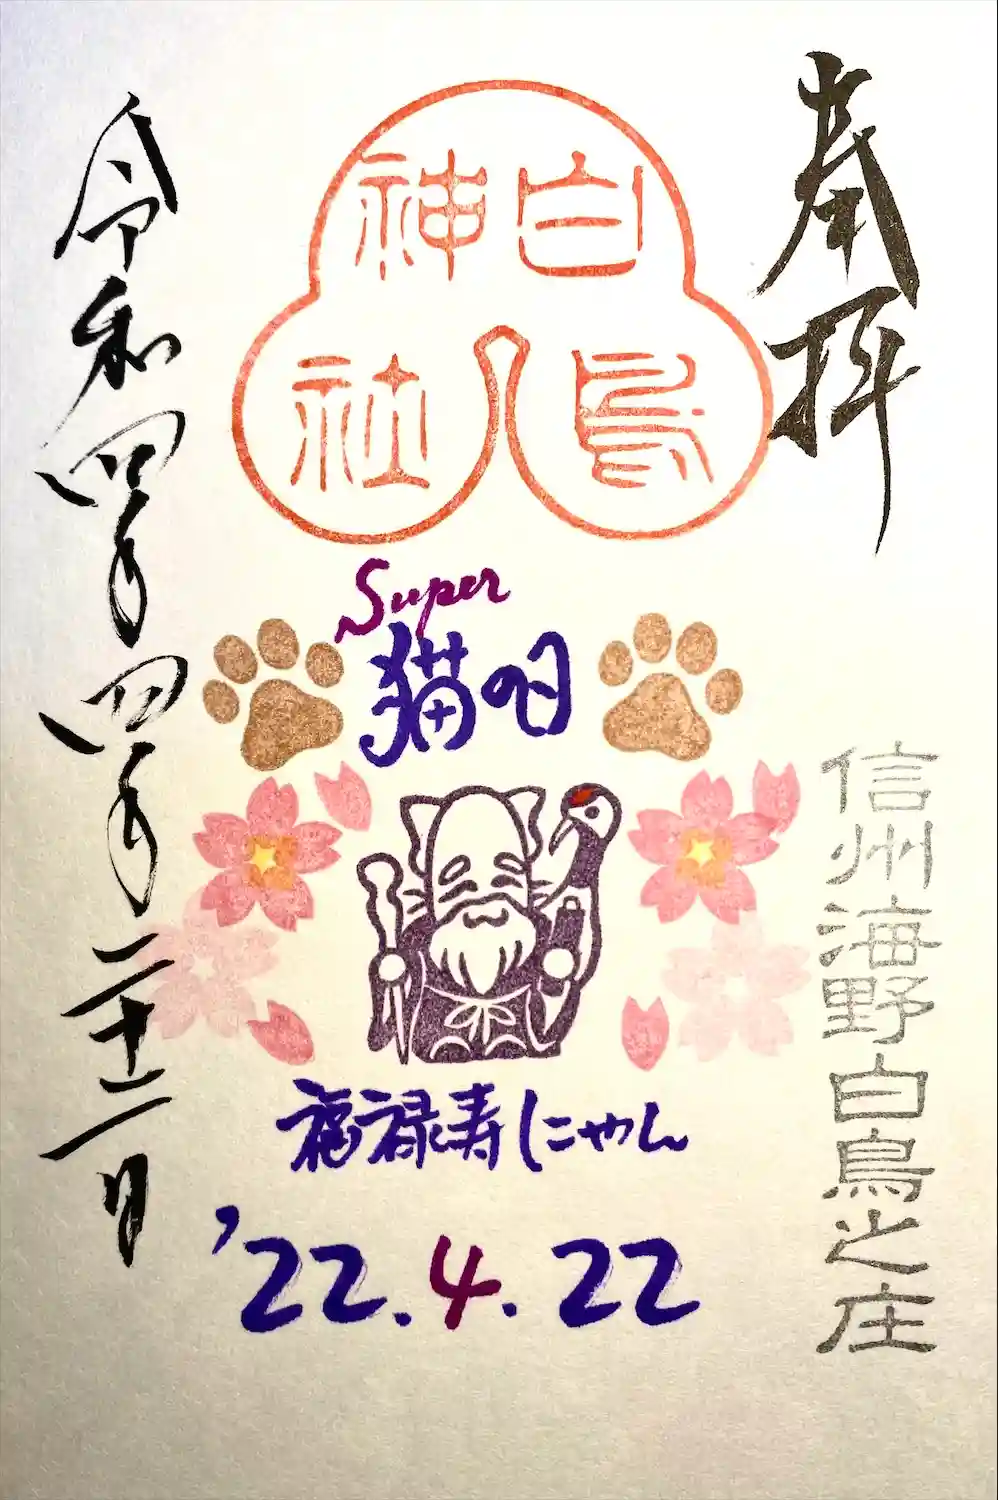 奉拝
白鳥神社
Super
猫の日
福禄寿しにゃん
'22.4.22
信州海野白鳥之庄
令和四年四月二十二日